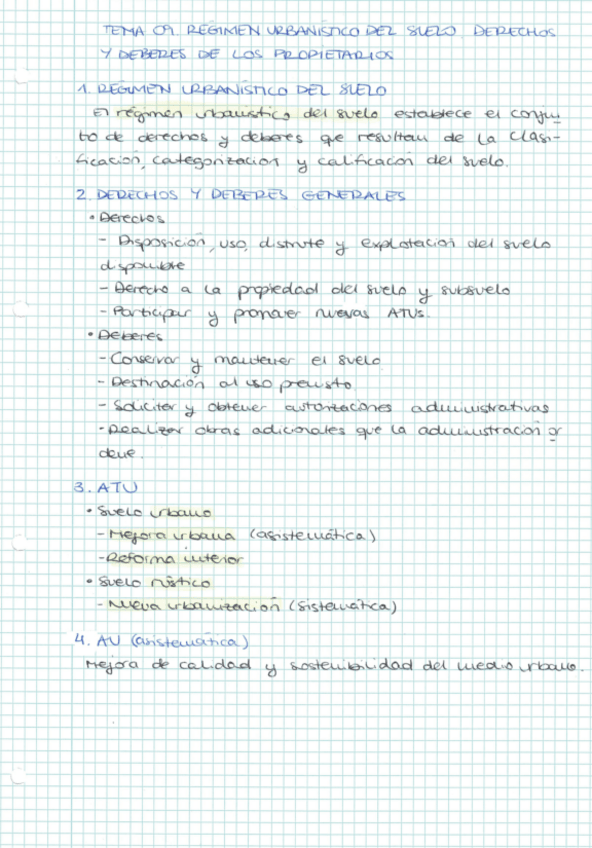 TEMA 09. RÉGIMEN URBANÍSTICO DEL SUELO. DERECHOS
Y DEBERES DE LOS PROPIETARIOS
1. RÉGIMEN URBANÍSTICO DEL SUELO
El régimen urbanístico del suelo establece el conjun
to de derechos y deberes que resultan de la clasi-
ficación, categorización y calificación del suelo.
2. DERECHOS Y DEBERES GENERALES
• Derechos
- Disposición, uso, disfrute y explotación del suelo
disponible
- Derecho a la propiedad del suelo y subsuelo
- Participar y promover nuevas ATUs.
• Deberes
- Conservar y mantener el suelo
- Destinación al uso previsto
- Solicitar y obtener autorizaciones administrativas
- Realizar obras adicionales que la administración or
dene.
3. ATU
• Suelo urbano
- Mejora urbana (asistemática)
- Reforma interior
• Suelo rústico
- Nueva urbanización (sistemática)
4. AU (asistemática)
Mejora de calidad y sostenibilidad del medio urbano.